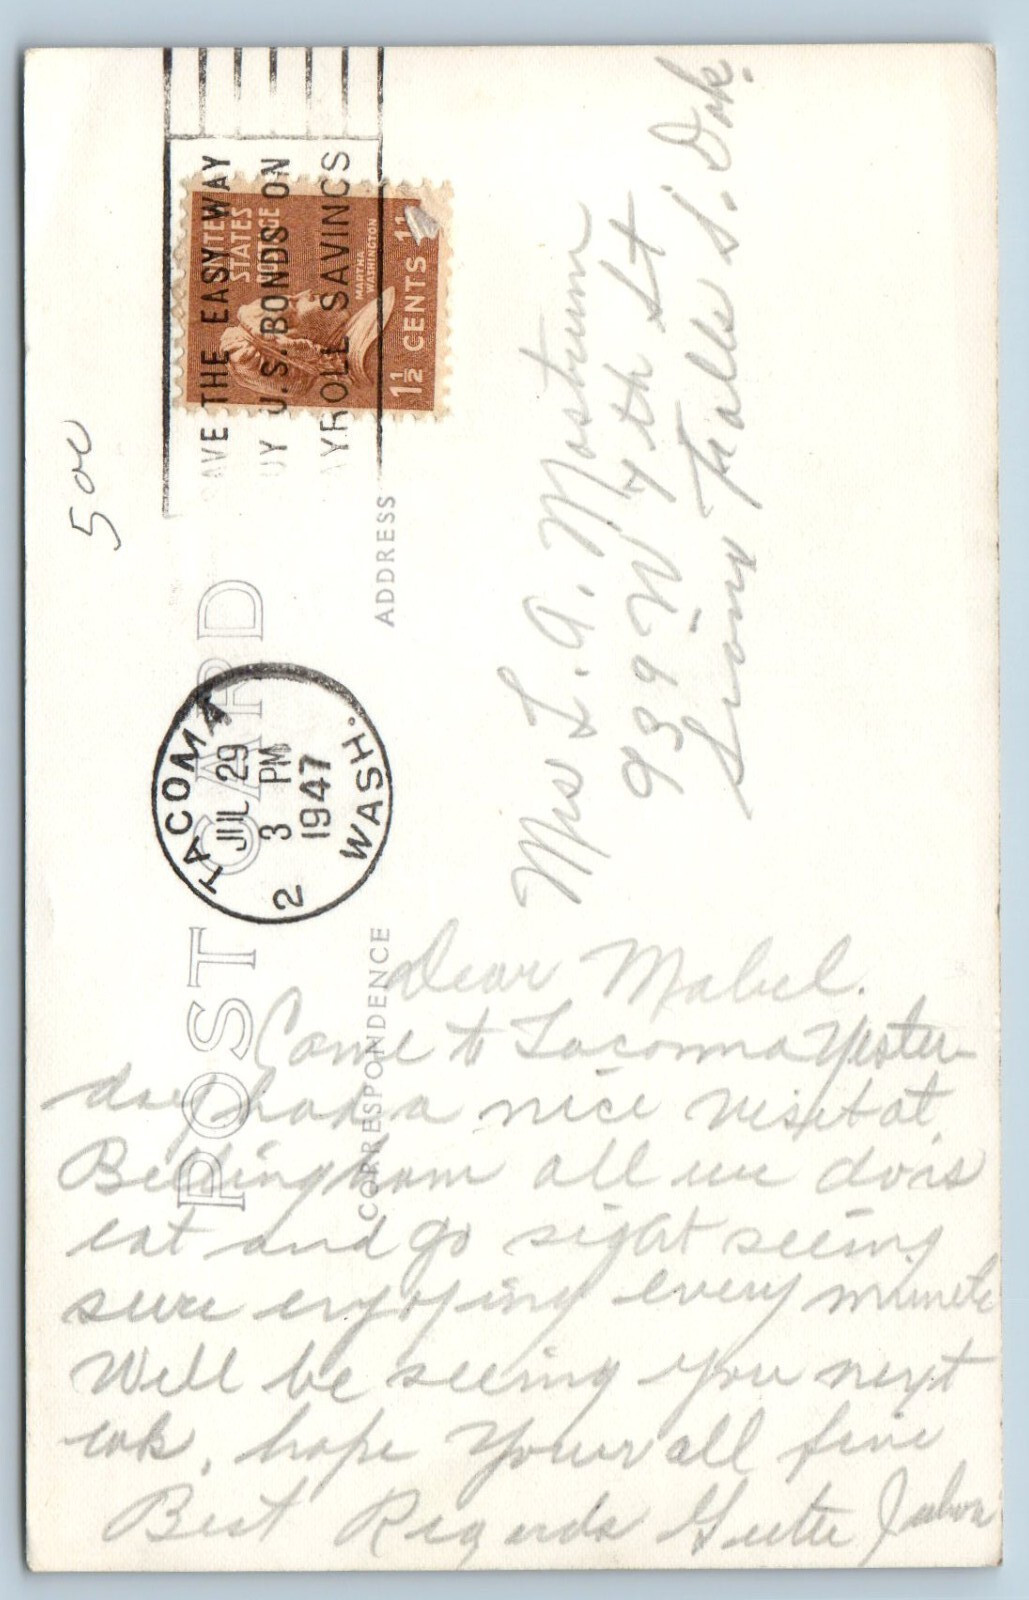 POST CARD
CORRESPONDENCE
ADDRESS
TACOMA
JUL 29
3 PM
1947
2
WASH.
AVE THE EASY WAY
UY U.S. BONDS ON
AYROLL SAVINGS
UNITED
STATES
POSTAGE
MARTHA
WASHINGTON
1½ CENTS 1
5oc
Mrs L. A. Mostrum
939 W 7th St
Sioux Falls S. Dak.
Dear Mabel.
Came to Tacoma Yester-
day had a nice visit at
Bellingham all we do is
eat and go sight seeing
sure enjoying every minute
Will be seeing you next
wk. hope your all fine
Best Regards